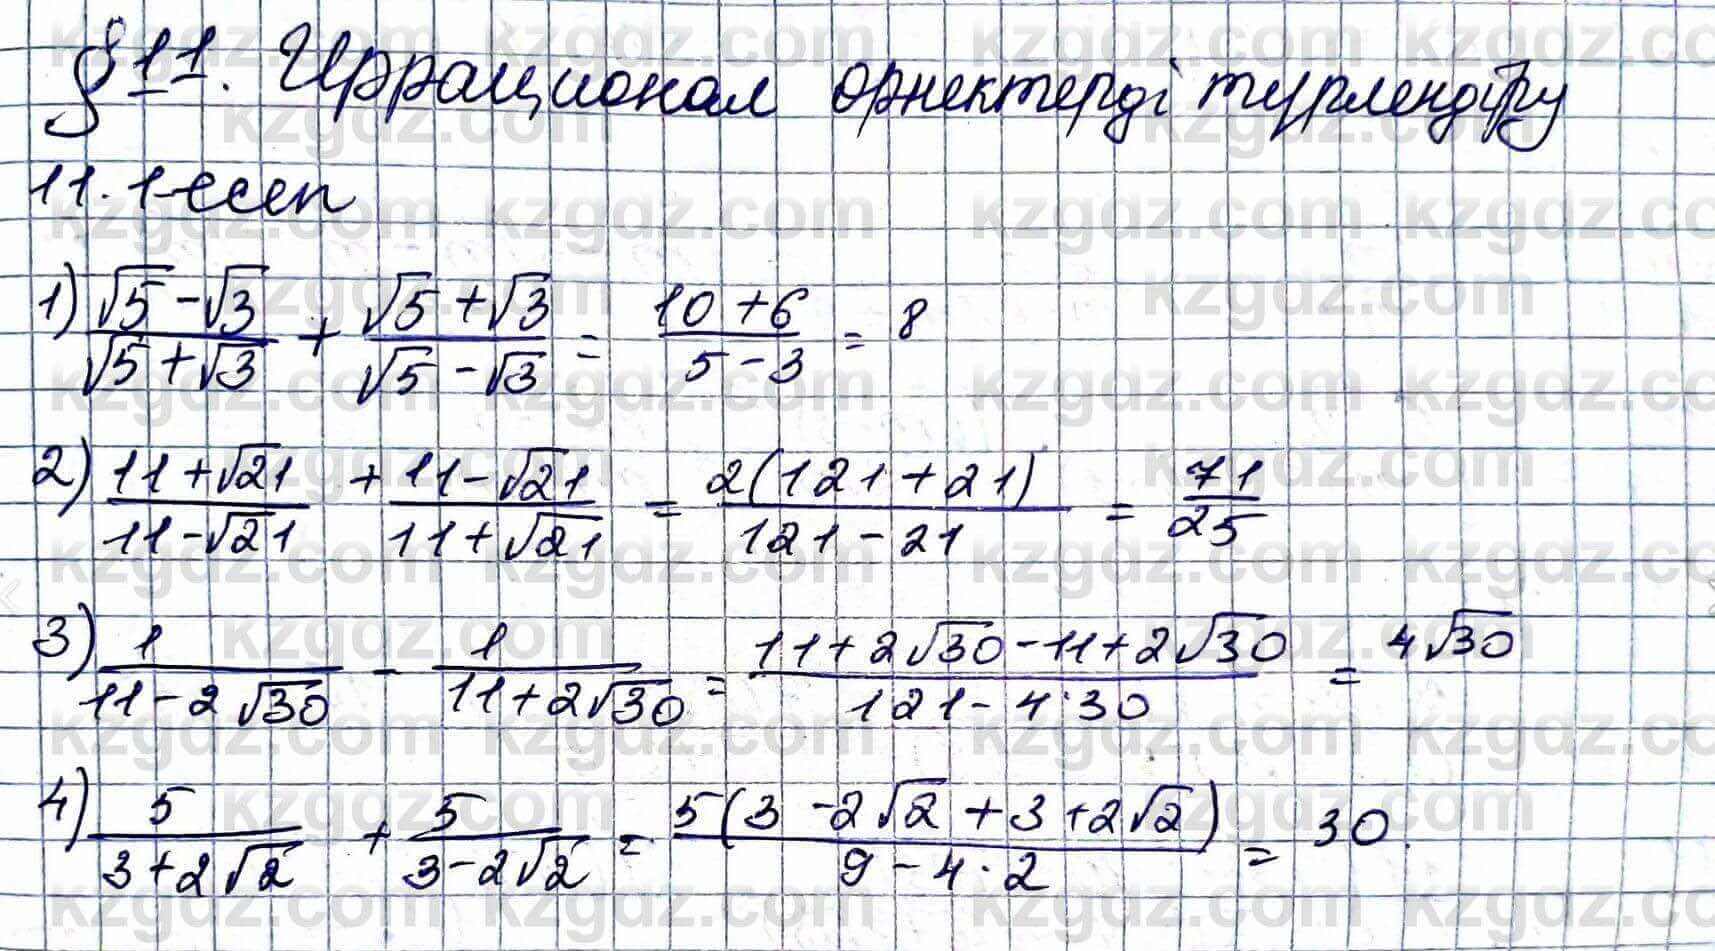 §11. Иррационал өрнектерді түрлендіру
11.1-есеп
1) (√5-√3)/(√5+√3) + (√5+√3)/(√5-√3) = (10+6)/(5-3) = 8
2) (11+√21)/(11-√21) + (11-√21)/(11+√21) = 2(121+21)/(121-21) = 71/25
3) 1/(11-2√30) - 1/(11+2√30) = (11+2√30-11+2√30)/(121-4·30) = 4√30
4) 5/(3+2√2) + 5/(3-2√2) = 5(3-2√2+3+2√2)/(9-4·2) = 30.
kzgdz.com